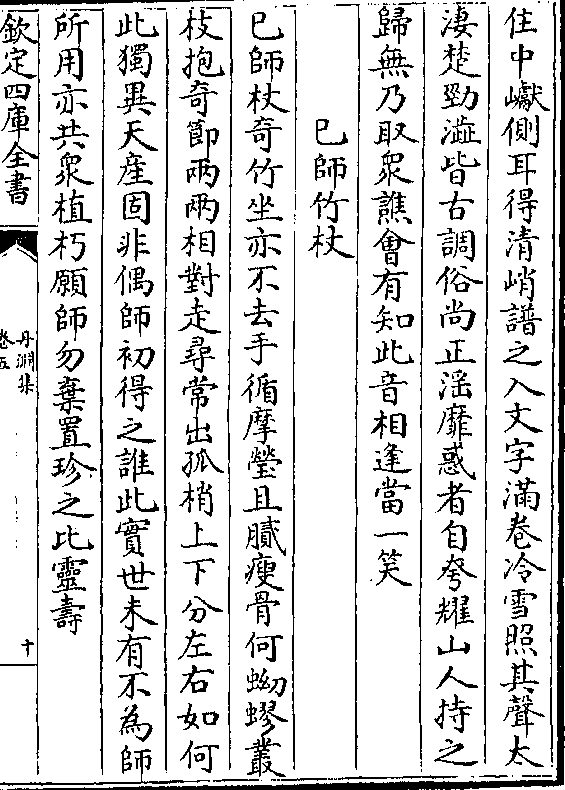 住中巘側耳得清峭譜之入文字滿卷冷雪照其聲太
淒楚勁澁皆古調俗尚正滛靡惑者自夸耀山人持之
歸無乃取衆譙㑹有知此音相逢當一笑
已師竹杖
已師杖奇竹坐亦不去手循摩瑩且膩瘦骨何蚴蟉叢
枝抱奇節兩兩相對走尋常出孤梢上下分左右如何
此獨異天産固非偶師初得之誰此實世未有不為師
所用亦共衆植朽願師勿棄置珍之比靈壽
欽定四庫全書
丹淵集
卷五
十